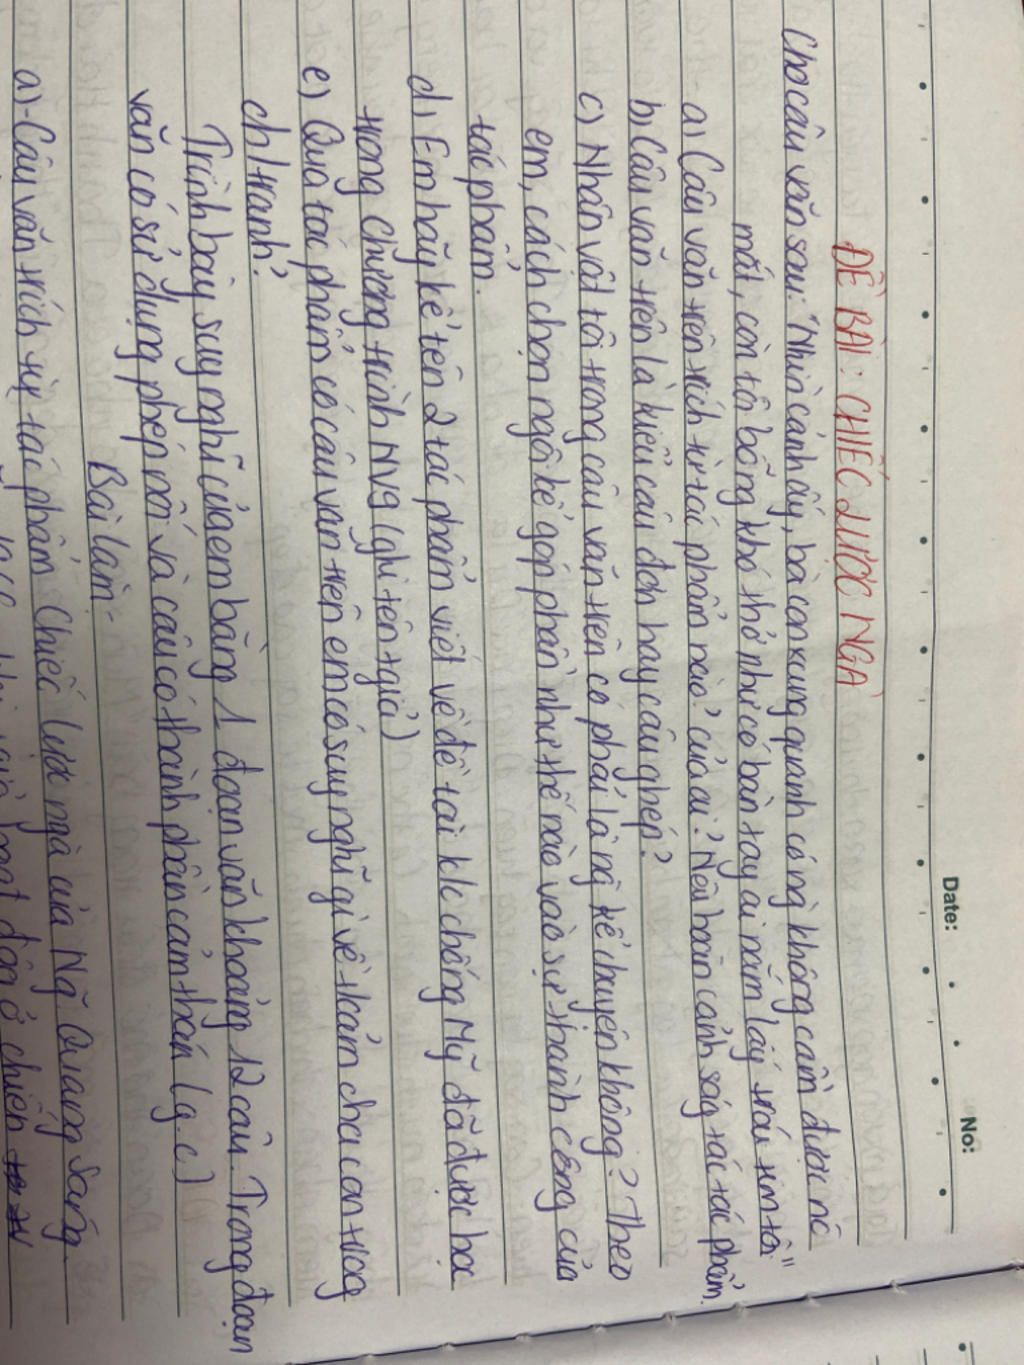 Date:
No:
ĐỀ BÀI: CHIẾC LƯỢC NGÀ
Cho câu văn sau: "Nhìn cảnh ấy, bà con xung quanh có ng không cầm được nc
mắt, còn tôi bỗng khó thở như có bàn tay ai nắm lấy trái tim tôi"
a) Câu văn trên trích từ tác phẩm nào? của ai? Nêu hoàn cảnh ság tác tác phẩm.
b) Câu văn trên là kiểu câu đơn hay câu ghép?
c) Nhân vật tôi trong câu văn trên có phải là ng kể chuyện không? Theo
em, cách chọn ngôi kể góp phần như thế nào vào sự thành công của
tác phẩm.
d) Em hãy kể tên 2 tác phẩm viết về đề tài k/c chống Mỹ đã được học
trong chương trình NV9 (ghi tên t.giả)
e) Qua tác phẩm có câu văn trên em có suy nghĩ gì về t/cảm cha con trong
ch/tranh?
Trình bày suy nghĩ của em bằng 1 đoạn văn khoảng 12 câu. Trong đoạn
văn có sử dụng phép nối và câu có thành phần cảm thán (g.c)
Bài làm:
a) - Câu văn trích từ tác phẩm Chiếc lược ngà của Ng Quang Sáng.